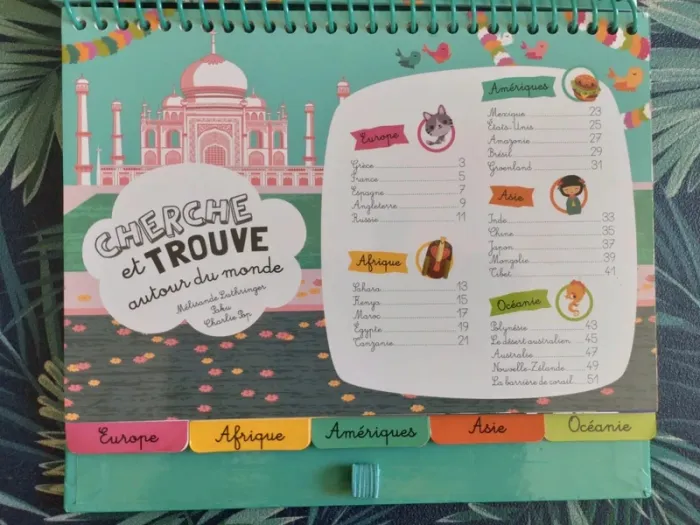 CHERCHE
et TROUVE
autour du monde
Mélisande Luthringer
Poku
Charlie Pop
Europe
Grèce 3
France 5
Espagne 7
Angleterre 9
Russie 11
Afrique
Sahara 13
Kenya 15
Maroc 17
Égypte 19
Tanzanie 21
Amériques
Mexique 23
États-Unis 25
Amazonie 27
Brésil 29
Groenland 31
Asie
Inde 33
Chine 35
Japon 37
Mongolie 39
Tibet 41
Océanie
Polynésie 43
Le désert australien 45
Australie 47
Nouvelle-Zélande 49
La barrière de corail 51
Europe
Afrique
Amériques
Asie
Océanie